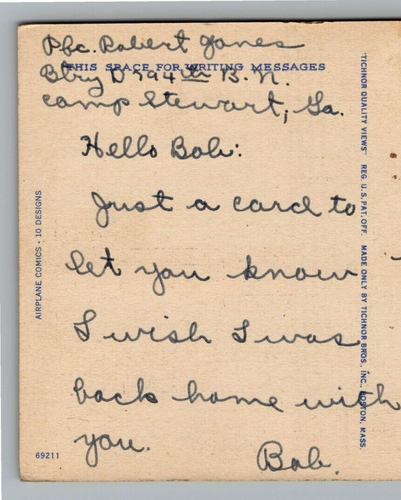 Pfc. Robert Jones
THIS SPACE FOR WRITING MESSAGES
Btry D 794th B.N.
Camp Stewart, Ga.
Hello Bob:
Just a card to
let you know
I wish I was
back home with
you.
Bob.
AIRPLANE COMICS - 10 DESIGNS
69211
"TICHNOR QUALITY VIEWS" REG. U. S. PAT. OFF. MADE ONLY BY TICHNOR BROS., INC., BOSTON, MASS.